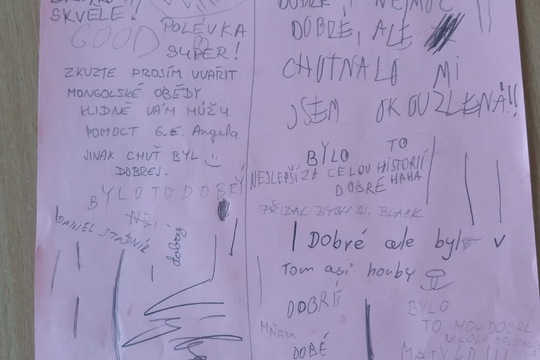 SKVĚLE!
GOOD
POLÉVKA
SUPER!
ZKUZTE PROSÍM UVAŘIT
MONGOLSKÉ OBĚDY
KLIDNĚ VÁM MŮŽU
POMOCT 6.E. Angela
JINAK CHUŤ BYL
DOBREJ.
BYLO TO DOBRÝ
DANIEL
dobrý
DOBRÉ, ALE
CHUTNALO MI
JSEM OKOUZLENÁ!!
BYLO TO
NEJLEPŠÍ ZA CELOU HISTORII
DOBRÉ HAHA
PŘIDAL BYCH SI. BLACK
Dobré ale bylo v
Tom asi houby
DOBRÉ
MŇAM
DOBÉ
BYLO
TO MOC DOBRÉ